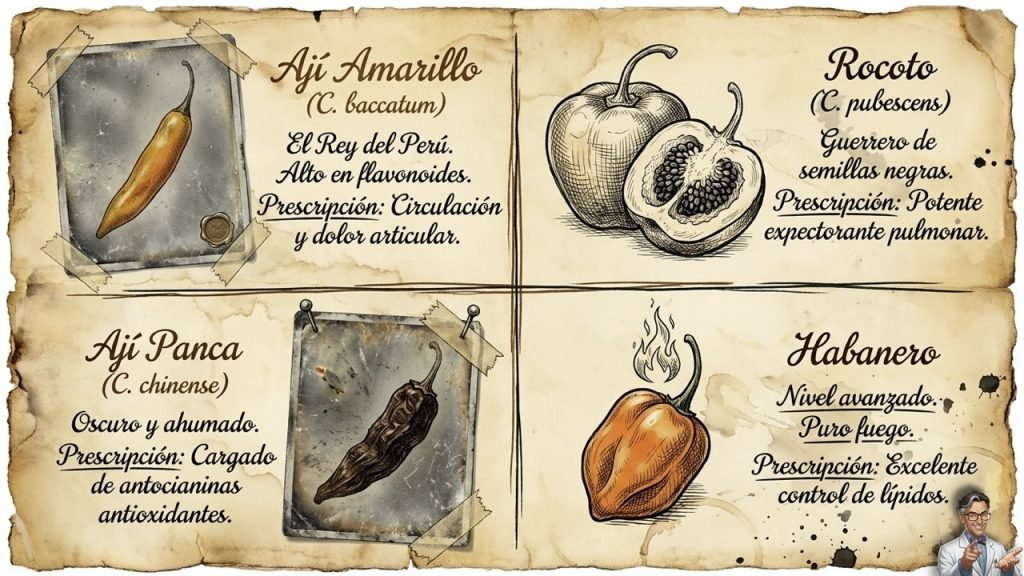 Ají Amarillo
(C. baccatum)
El Rey del Perú.
Alto en flavonoides.
Prescripción: Circulación
y dolor articular.
Rocoto
(C. pubescens)
Guerrero de
semillas negras.
Prescripción: Potente
expectorante pulmonar.
Ají Panca
(C. chinense)
Oscuro y ahumado.
Prescripción: Cargado
de antocianinas
antioxidantes.
Habanero
Nivel avanzado.
Puro fuego.
Prescripción: Excelente
control de lípidos.